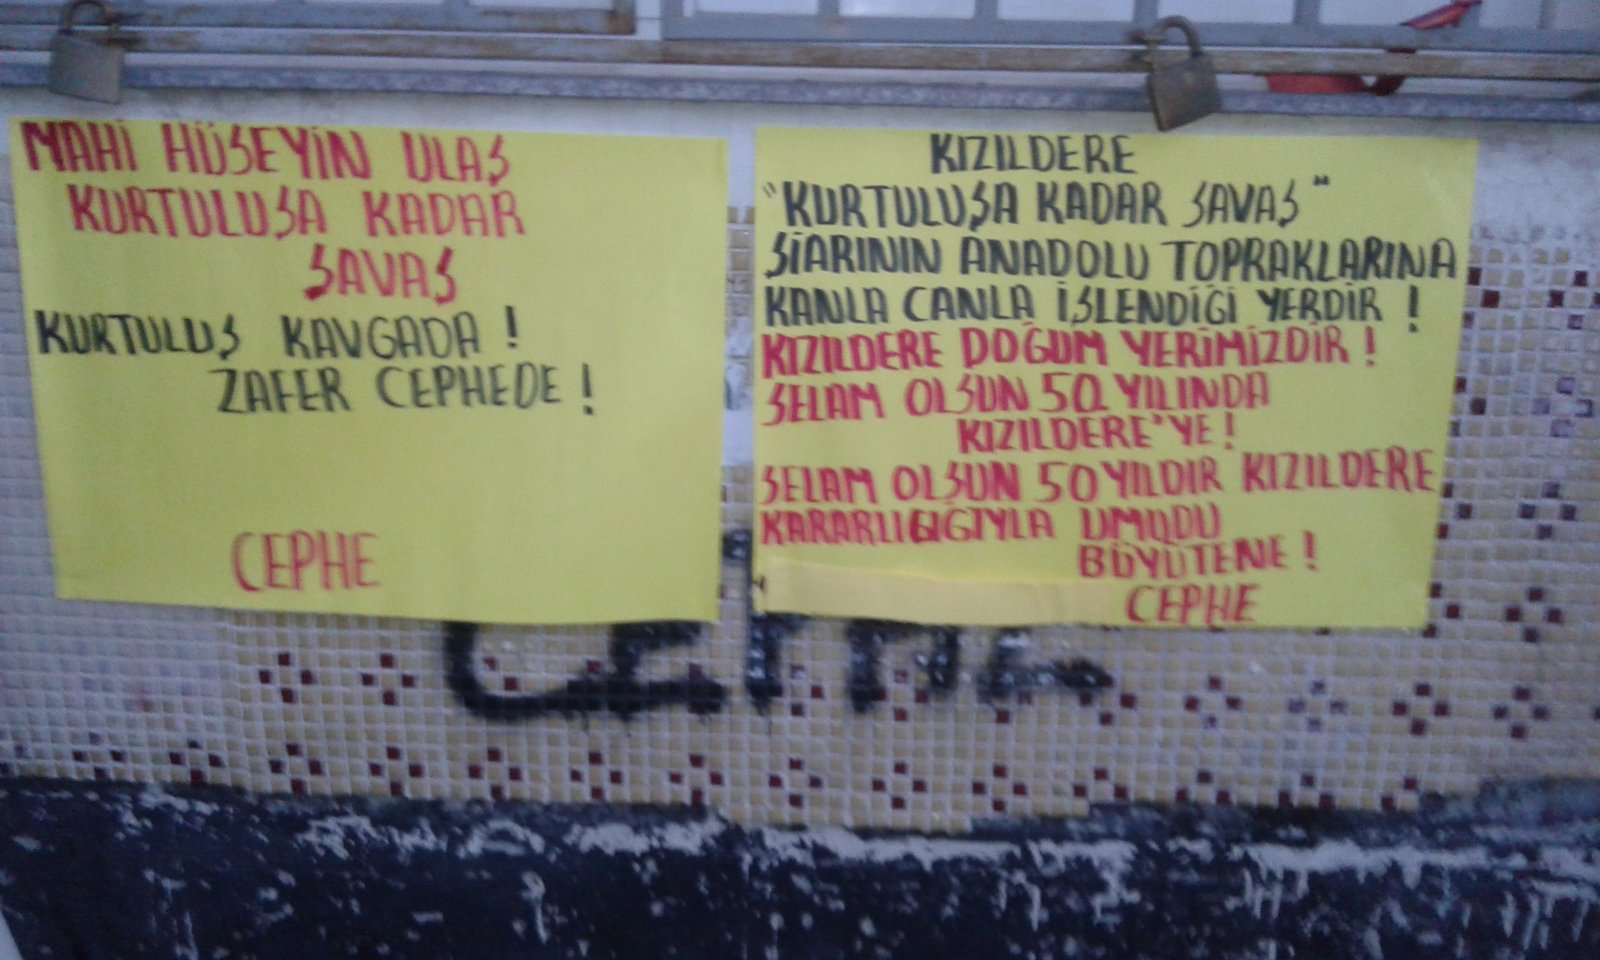 MAHİ HÜSEYİN ULAŞ
KURTULUŞA KADAR
SAVAŞ
KURTULUŞ KAVGADA !
ZAFER CEPHEDE !
CEPHE
KIZILDERE
"KURTULUŞA KADAR SAVAŞ"
ŞİARININ ANADOLU TOPRAKLARINA
KANLA CANLA İŞLENDİĞİ YERDİR !
KIZILDERE DOĞUM YERİMİZDİR !
SELAM OLSUN 50. YILINDA
KIZILDERE'YE !
SELAM OLSUN 50 YILDIR KIZILDERE
KARARLIĞIYLA UMUDU
BÜYÜTENE !
CEPHE
CEPHE